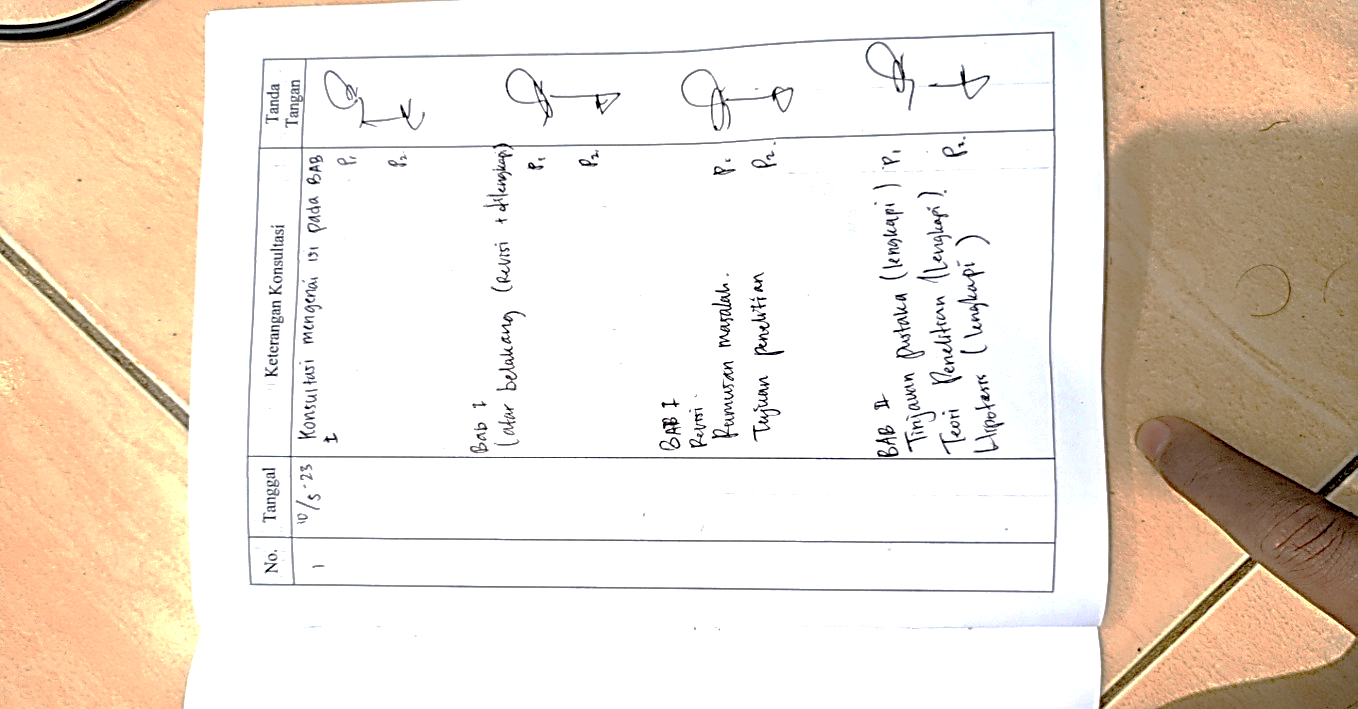 No. Tanggal Keterangan Konsultasi Tanda Tangan
1 10/5-23 Konsultasi mengenai isi pada BAB
I P1
P2
Bab I
Latar belakang (Revisi + dilengkapi)
P1
P2
BAB I
Revisi.
Rumusan masalah. P1
Tujuan penelitian P2.
BAB II
Tinjauan pustaka (lengkapi) P1
Teori Penelitian (lengkapi). P2.
Hipotesis (lengkapi)